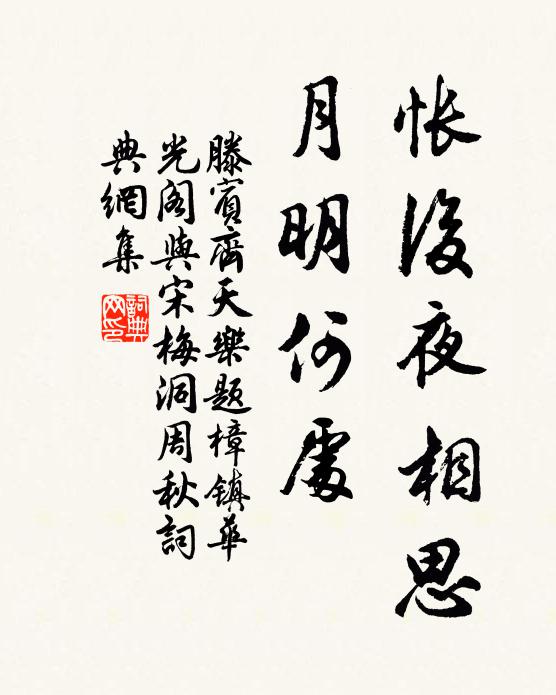 悵後夜相思
月明何處
滕賓齊天樂題樟鎮華
光閣與宋梅洞周秋詞
典網集
詞典
网印